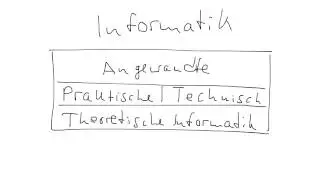 Informatik
Angewandte
Praktische | Technisch
Theoretische Informatik